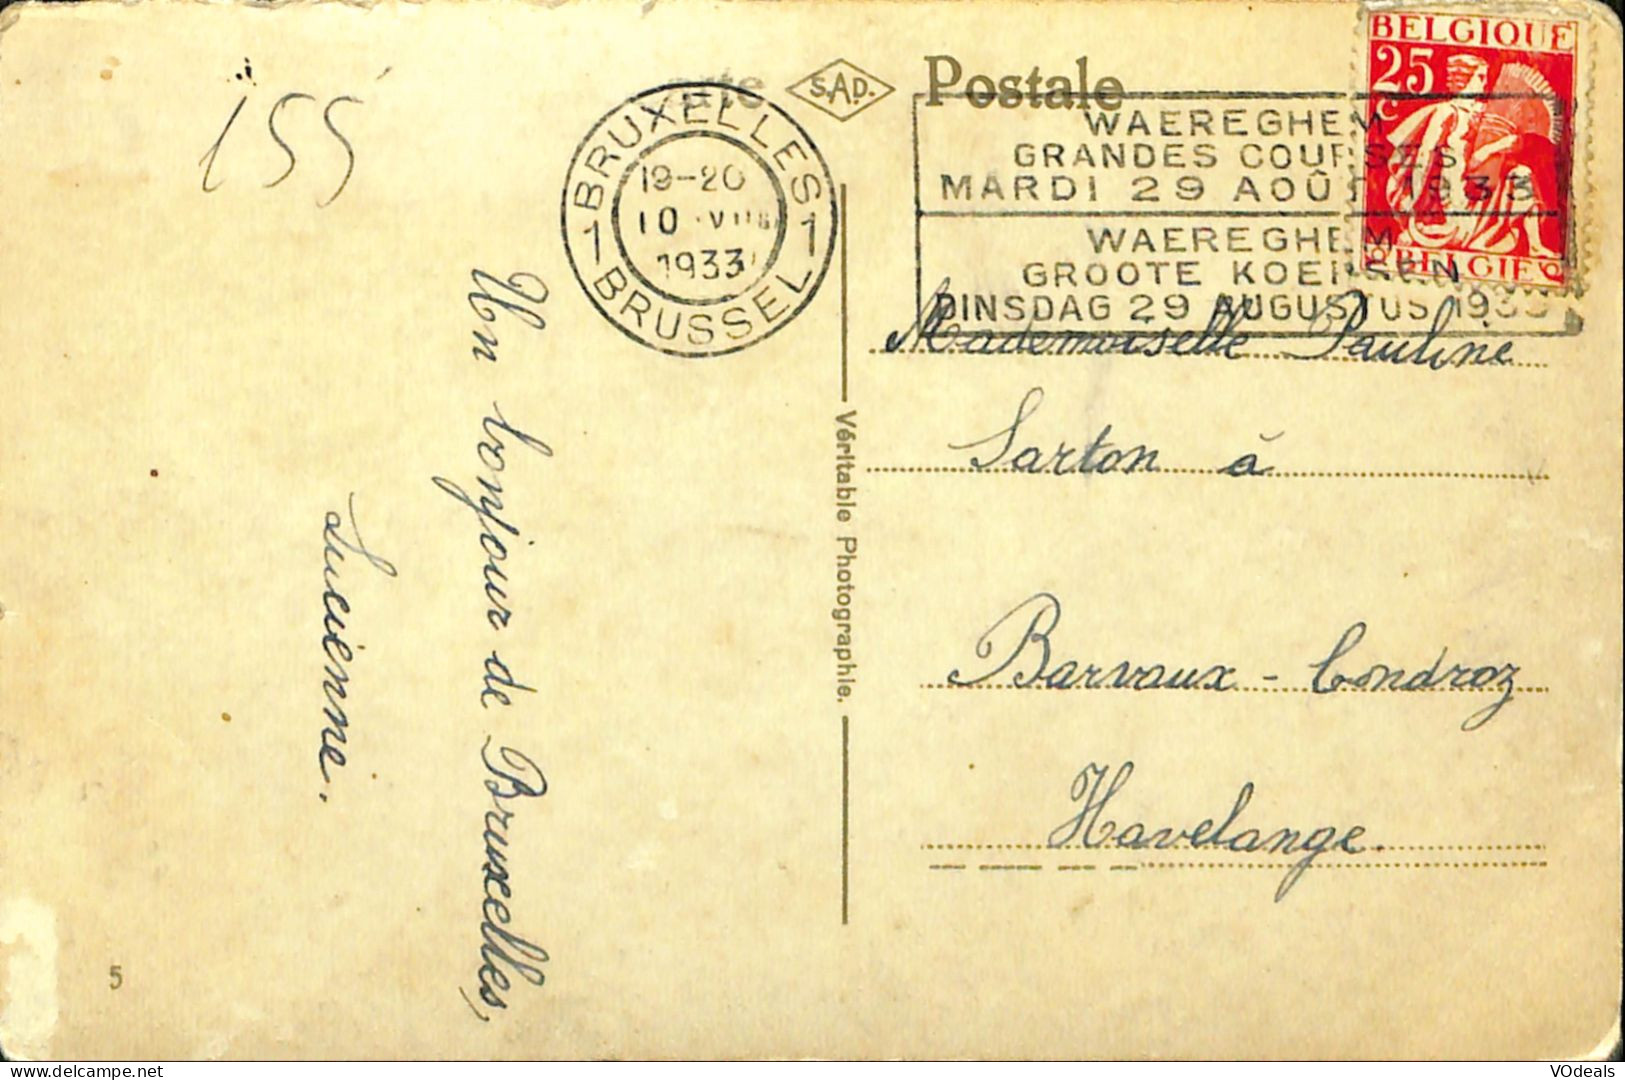 155
Carte S.A.D. Postale
BRUXELLES
19-20
10 VIII
1933
1 BRUSSEL 1
WAEREGHEM
GRANDES COURSES
MARDI 29 AOÛT 1933
WAEREGHEM
GROOTE KOERSEN
DINSDAG 29 AUGUSTUS 1933
BELGIQUE
25
C
BELGIË
Un bonjour de Bruxelles,
Lucienne.
Véritable Photographie.
Mademoiselle Pauline
Sarton à
Barvaux-Condroz
Havelange.
5
VOdeals